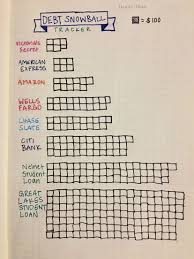 DEBT SNOWBALL
TRACKER
= $100
VICTORIA'S
SECRET
AMERICAN
EXPRESS
AMAZON
WELLS
FARGO
CHASE
SLATE
CITI
BANK
Nelnet
Student
Loan
GREAT
LAKES
STUDENT
LOAN